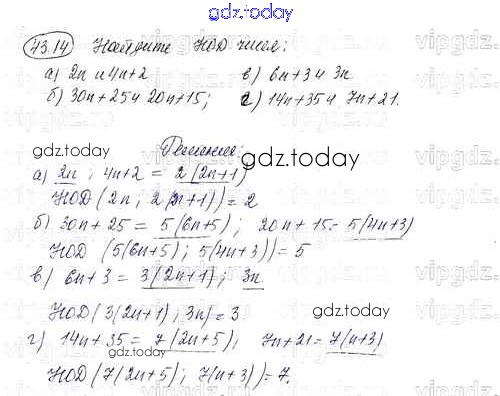 gdz.today
43.14 Найдите НОД чисел:
а) 2n и 4n+2 в) 6n+3 и 3n
б) 30n+25 и 20n+15; г) 14n+35 и 7n+21.
Решение:
gdz.today gdz.today
а) 2n; 4n+2 = 2(2n+1)
НОД (2n; 2(2n+1)) = 2
б) 30n+25 = 5(6n+5); 20n+15 = 5(4n+3)
НОД (5(6n+5); 5(4n+3)) = 5
в) 6n+3 = 3(2n+1); 3n
gdz.today
НОД (3(2n+1); 3n) = 3
г) 14n+35 = 7(2n+5); 7n+21 = 7(n+3)
gdz.today
НОД (7(2n+5); 7(n+3)) = 7.